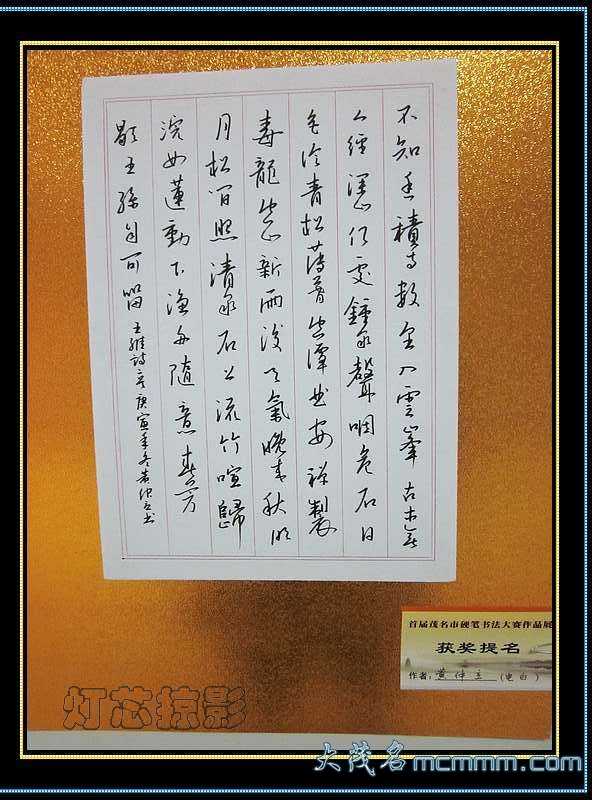 不知香積寺數里入雲峯古木無
人徑深山何處鐘泉聲咽危石日
色冷青松薄暮空潭曲安禪製
毒龍空山新雨後天氣晚來秋明
月松間照清泉石上流竹喧歸
浣女蓮動下漁舟隨意春芳
歇王孫自可留 王維詩二首庚寅年冬黄仲立书
首届茂名市硬笔书法大赛作品展
获奖提名
作者：黄仲立（电白）
灯芯掠影
大茂名mcmmm.com